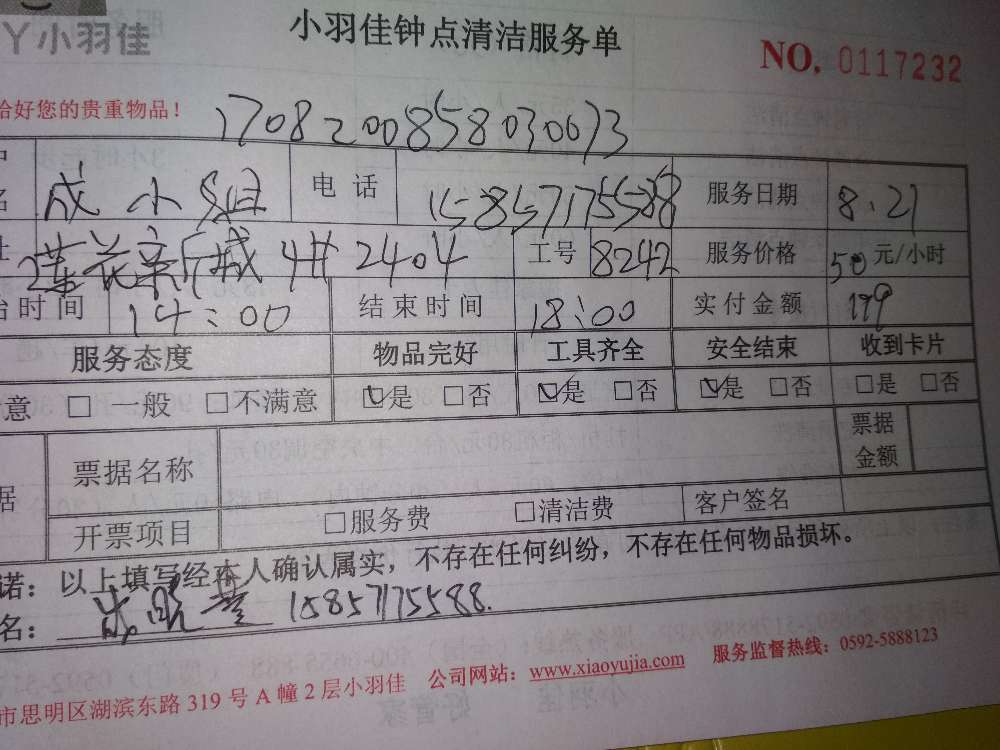 丫小羽佳
小羽佳钟点清洁服务单
NO. 0117232
给好您的贵重物品！
170820085803001 3
成小姐 电话 15857175588 服务日期 8.21
莲花新城 4# 2404 工号 8242 服务价格 50 元/小时
时间 14:00 结束时间 18:00 实付金额 199
服务态度 物品完好 工具齐全 安全结束 收到卡片
意 □ 一般 □不满意 ☑是 □否 ☑是 □否 ☑是 □否 □是 □否
据 票据名称 票据金额
开票项目 □服务费 □清洁费 客户签名
诺：以上填写经本人确认属实，不存在任何纠纷，不存在任何物品损坏。
名： 15857175588.
市思明区湖滨东路 319 号 A 幢 2 层小羽佳 公司网站：www.xiaoyujia.com 服务监督热线：0592-5888123